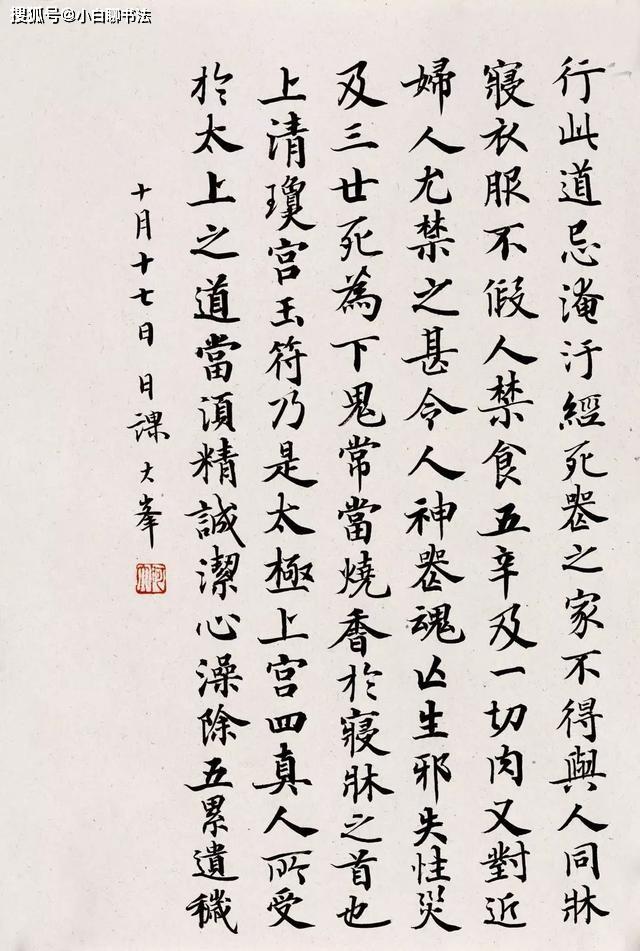 搜狐号@小白聊书法
行此道忌淹汙經死䘮之家不得與人同牀
寢衣服不假人禁食五辛及一切肉又對近
婦人尤禁之甚令人神䘮魂亾生邪失性災
及三世死為下鬼常當燒香於寢牀之首也
上清瓊宮玉符乃是太極上宮四真人所受
於太上之道當須精誠潔心澡除五累遺穢
十月十七日 日課 大峯